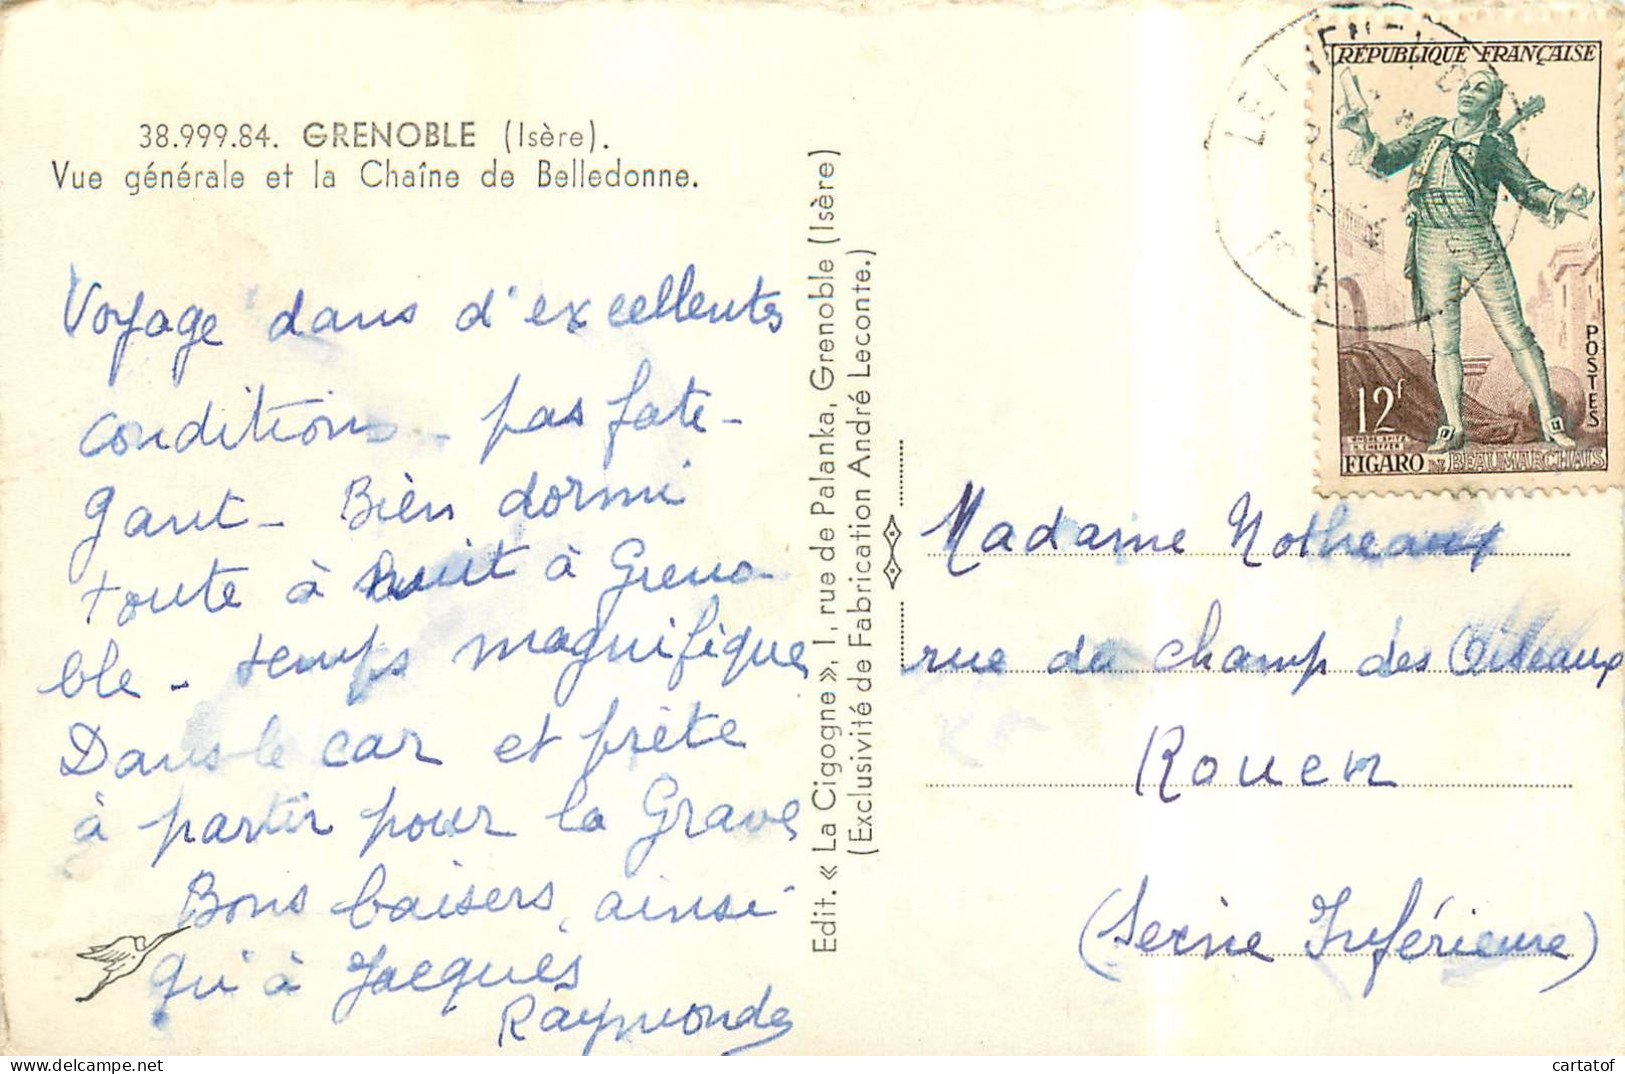 38.999.84. GRENOBLE (Isère).
Vue générale et la Chaîne de Belledonne.
Voyage dans d'excellentes
conditions - pas fati-
gant - Bien dormi
toute à nuit à Greno-
ble - temps magnifique
Dans le car et prête
à partir pour la Grave
Bons baisers ainsi
qu'à Jacques
Raymonde
Edit. « La Cigogne », 1, rue de Palanka, Grenoble (Isère)
(Exclusivité de Fabrication André Leconte.)
RÉPUBLIQUE FRANÇAISE
POSTES
12f
FIGARO DE BEAUMARCHAIS
Madame Notheaux
rue du champ des Oiseaux
Rouen
(Seine Inférieure)
cartatof